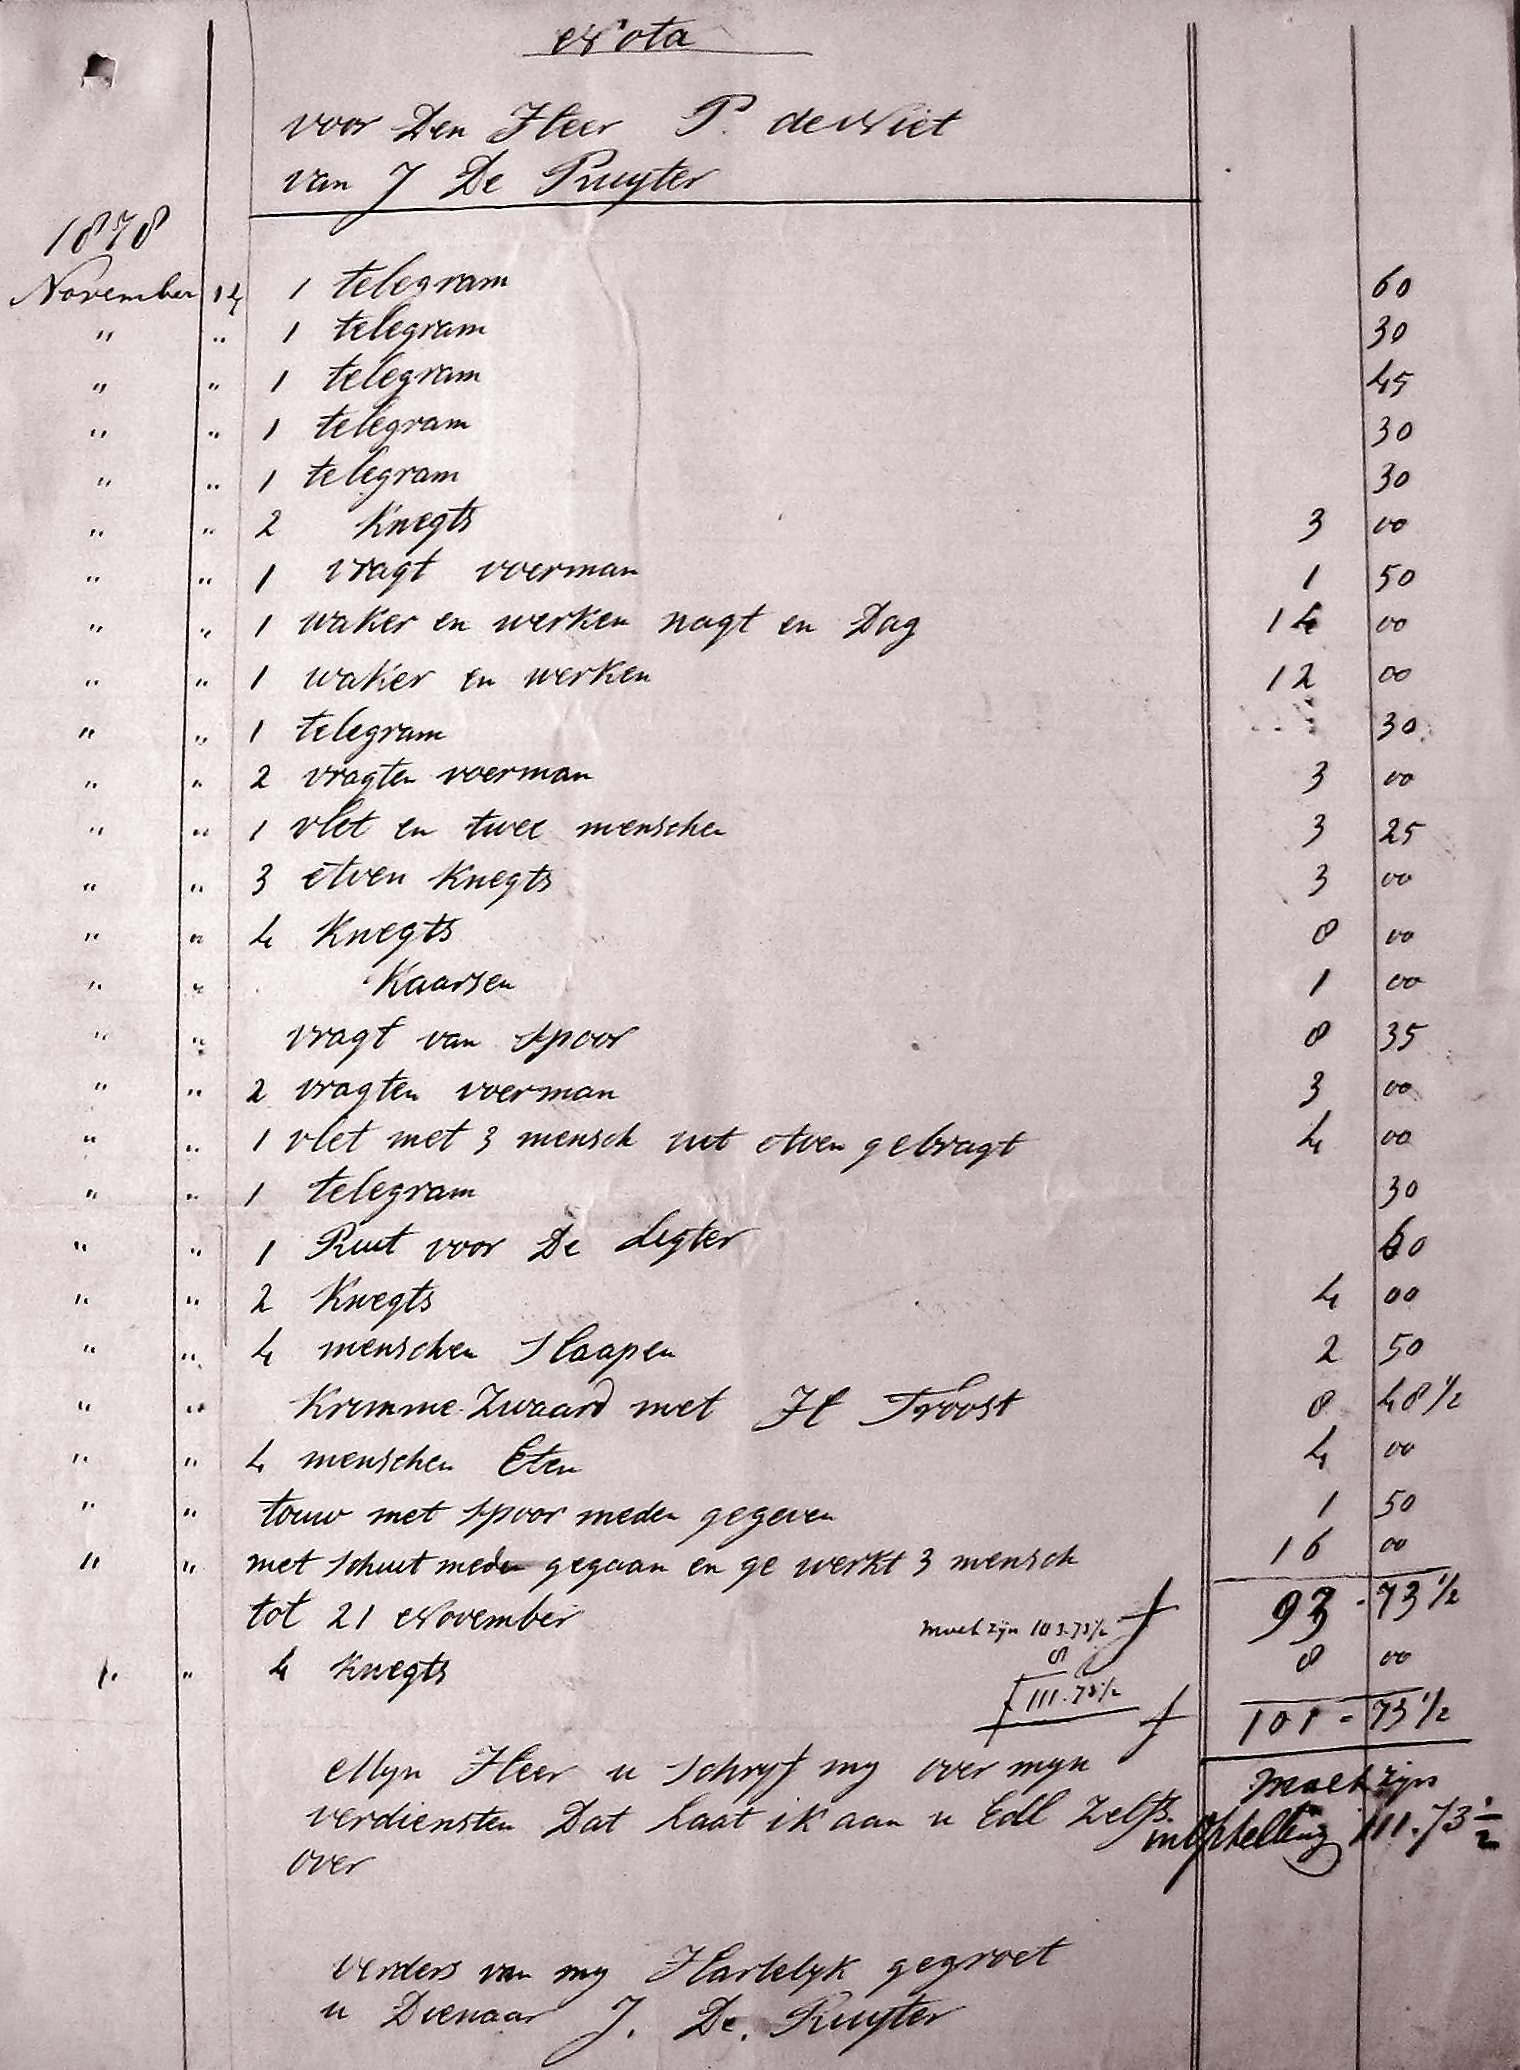 Nota
voor Den Heer P. de Niet
van J De Ruyter
1878
November 14 1 telegram 60
" " 1 telegram 30
" " 1 telegram 45
" " 1 telegram 30
" " 1 telegram 30
" " 2 Knegts 3 00
" " 1 vragt voerman 1 50
" " 1 waker en werken nagt en Dag 14 00
" " 1 waker en werken 12 00
" " 1 telegram 30
" " 2 vragten voerman 3 00
" " 1 vlet en twee menschen 3 25
" " 3 etven Knegts 3 00
" " 4 Knegts 8 00
" " Kaarsen 1 00
" " vragt van spoor 8 35
" " 2 vragten voerman 3 00
" " 1 vlet met 3 mensch uit etven gebragt 4 00
" " 1 telegram 30
" " 1 Ruit voor De Ligter 60
" " 2 Knegts 4 00
" " 4 menschen Slaapen 2 50
" " Kromme Zwaard met H Troost 8 48 1/2
" " 4 menschen Eten 4 00
" " touw met spoor meden gegeven 1 50
" " met schuit meden gegaan en ge werkt 3 mensch 16 00
tot 21 November 93 - 73 1/2
moet zijn 103.73 1/2
8
" " 4 Knegts 8 00
f 111.73 1/2
101 = 73 1/2
Myn Heer u schryf my over myn
moet zijn
verdiensten Dat laat ik aan u Edl Zelfs
in optelling 111.73 1/2
over
verders van my Hartelyk gegroet
u Dienaar J. De. Ruyter